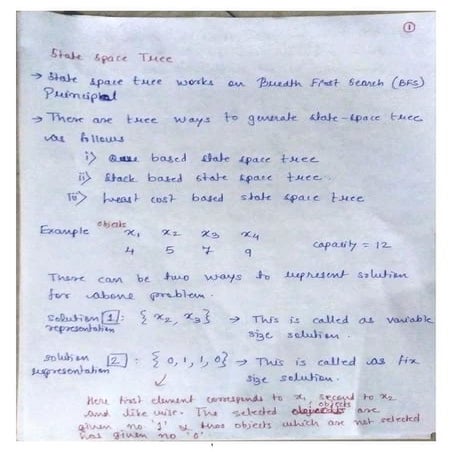 ①
State Space Tree
→ State space tree works on Breadth First Search (BFS)
Principal
→ There are tree ways to generate state-space tree
as follows
i) Queue based state space tree
ii) Stack based state space tree.
iii) Least cost based state space tree
Example objects x1 x2 x3 x4
4 5 7 9 capacity = 12
There can be two ways to represent solution
for above problem.
solution 1 : { x2, x3} → This is called as variable
representation size solution.
solution 2 : { 0, 1, 1, 0} → This is called as fix
representation size solution.
Here first element corresponds to x1, second to x2
and like wise. The selected objects are
given no '1' & those objects which are not selected
has given no '0'